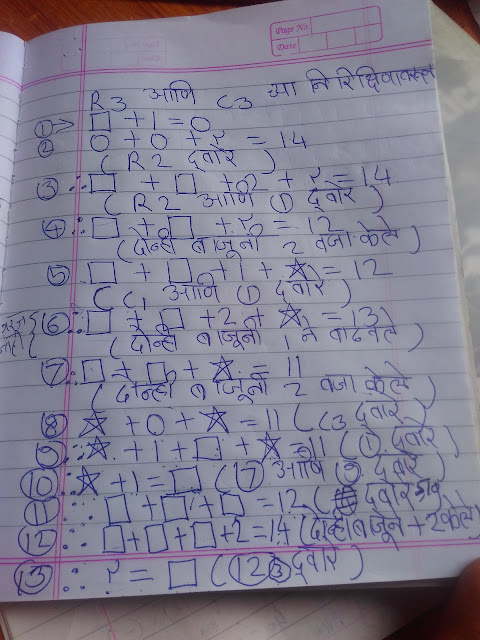 Page No.
Date
R3 आणि C3 च्या निरीक्षणावरून
① → □ + 1 = 0
② 0 + 0 + २ = 14
(R2 द्वारे)
③ ∴ □ + □ + 2 + २ = 14
(R2 आणि ① द्वारे)
④ ∴ □ + □ + २ = 12
(दोन्ही बाजूंनी 2 वजा केले)
⑤ □ + □ + 1 + ☆ = 12
(C1 आणि ① द्वारे)
⑥ ∴ □ + □ + 2 + ☆ = 13
(दोन्ही बाजूंनी 1 ने वाढवले)
⑦ ∴ □ + □ + ☆ = 11
(दोन्ही बाजूंनी 2 वजा केले)
⑧ ☆ + 0 + ☆ = 11 (C3 द्वारे)
⑨ ∴ ☆ + 1 + □ + ☆ = 11 (① द्वारे)
⑩ ∴ ☆ + 1 = □ (⑦ आणि ⑨ द्वारे)
⑪ ∴ □ + □ + □ = 12 ( द्वारे
⑫ ∴ □ + □ + □ + 2 = 14 (दोन्ही बाजूने + 2 केले)
⑬ ∴ २ = □ (⑫ ③ द्वारे)